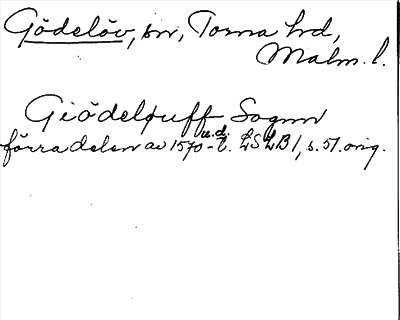 Gödelöv, sn, Torna hd,
Malm. l.
Giödelpuff Sognn
u.d.
förra delen av 1570-t. LSLB 1, s. 51. orig.